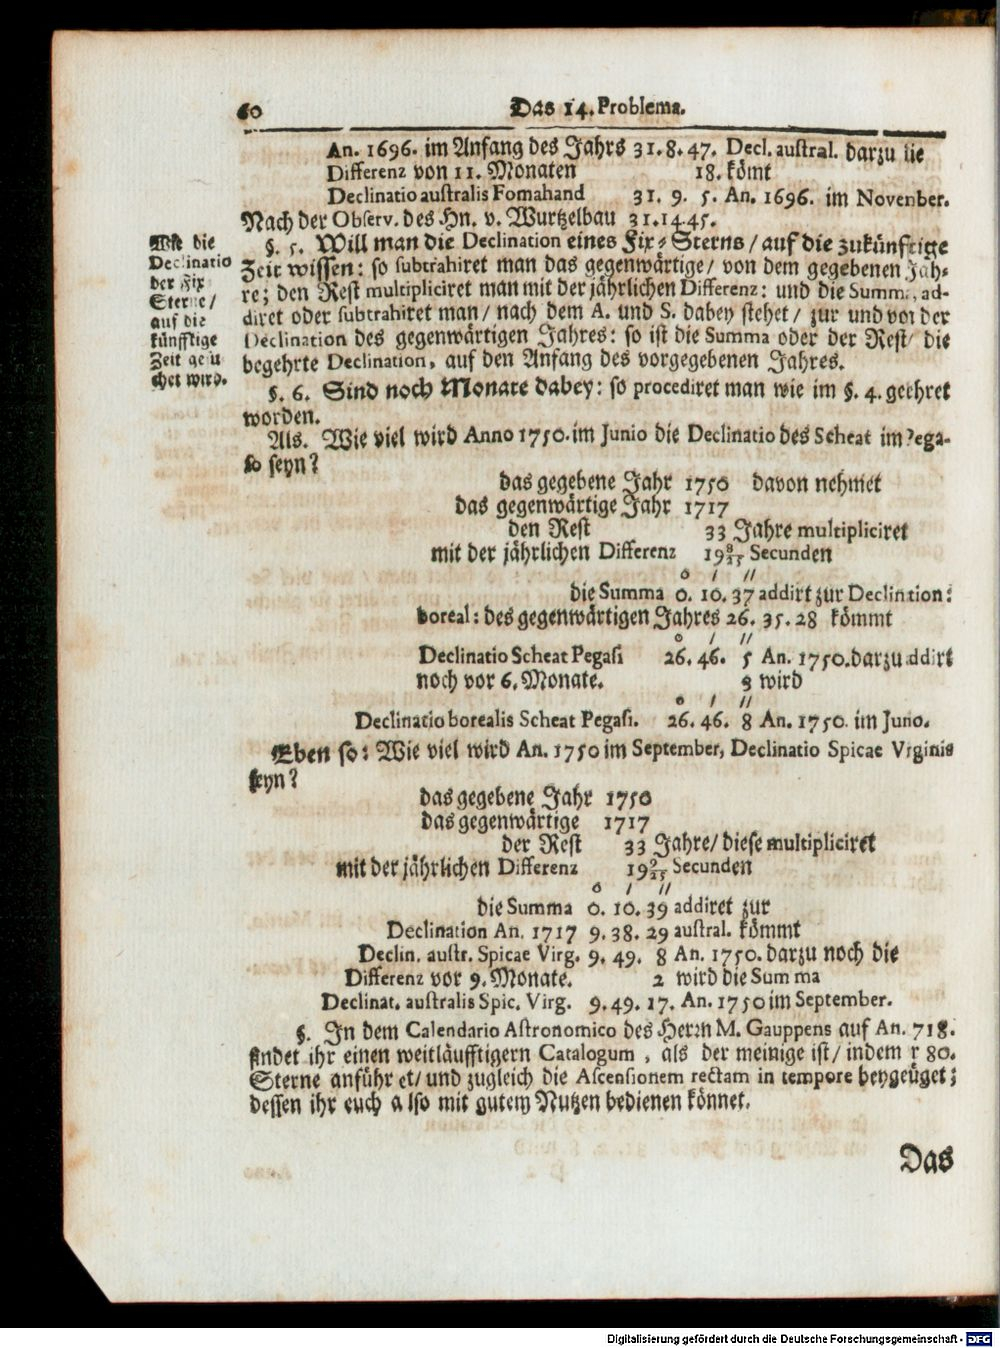 60
Das 14. Problema.
An. 1696. im Anfang des Jahrs 31. 8. 47. Decl. austral. darzu die
Differenz von 11. Monaten 18. kömt
Declinatio australis Fomahand 31. 9. 5. An. 1696. im Novenber.
Nach der Observ. des Hn. v. Wurtzelbau 31. 14. 45.
Wie die
Declinatio
der Fix
Sterne /
auf die
künfftige
Zeit gesu
chet wird.
§. 5. Will man die Declination eines Fix⸗Sterns / auf die zukünftige
Zeit wissen: so subtrahiret man das gegenwärtige / von dem gegebenen Jah⸗
re; den Rest multipliciret man mit der jährlichen Differenz: und die Summ., ad-
diret oder subtrahiret man / nach dem A. und S. dabey stehet / zur und von der
Declination des gegenwärtigen Jahres: so ist die Summa oder der Rest / die
begehrte Declination, auf den Anfang des vorgegebenen Jahres.
§. 6. Sind noch Monate dabey: so procediret man wie im §. 4. geehret
worden.
Als. Wie viel wird Anno 1750. im Junio die Declinatio des Scheat im Pega-
so seyn?
das gegebene Jahr 1750 davon nehmet
das gegenwärtige Jahr 1717
den Rest 33 Jahre multipliciret
mit der jährlichen Differenz 19 8/25 Secunden
o / //
die Summa 0. 10. 37 addirt zur Declination:
boreal: des gegenwärtigen Jahres 26. 35. 28 kömmt
o / //
Declinatio Scheat Pegasi 26. 46. 5 An. 1750. darzu addirt
noch vor 6. Monate. 3 wird
o / //
Declinatio borealis Scheat Pegasi. 26. 46. 8 An. 1750. im Juno.
Eben so: Wie viel wird An. 1750 im September, Declinatio Spicae Virginis
seyn?
das gegebene Jahr 1750
das gegenwärtige 1717
der Rest 33 Jahre / diese multipliciret
mit der jährlichen Differenz 19 9/25 Secunden
o / //
die Summa 0. 10. 39 addiret zur
Declination An. 1717 9. 38. 29 austral. kömmt
Declin. austr. Spicae Virg. 9. 49. 8 An. 1750. darzu noch die
Differenz vor 9. Monate. 2 wird die Summa
Declinat. australis Spic. Virg. 9. 49. 17. An. 1750 im September.
§. In dem Calendario Astronomico des Herrn M. Gauppens auf An. 718.
findet ihr einen weitläufftigern Catalogum, als der meinige ist / indem r 80.
Sterne anführet / und zugleich die Ascensionem rectam in tempore beygeüget;
dessen ihr euch also mit gutem Nutzen bedienen könnet.
Das
Digitalisierung gefördert durch die Deutsche Forschungsgemeinschaft - DFG